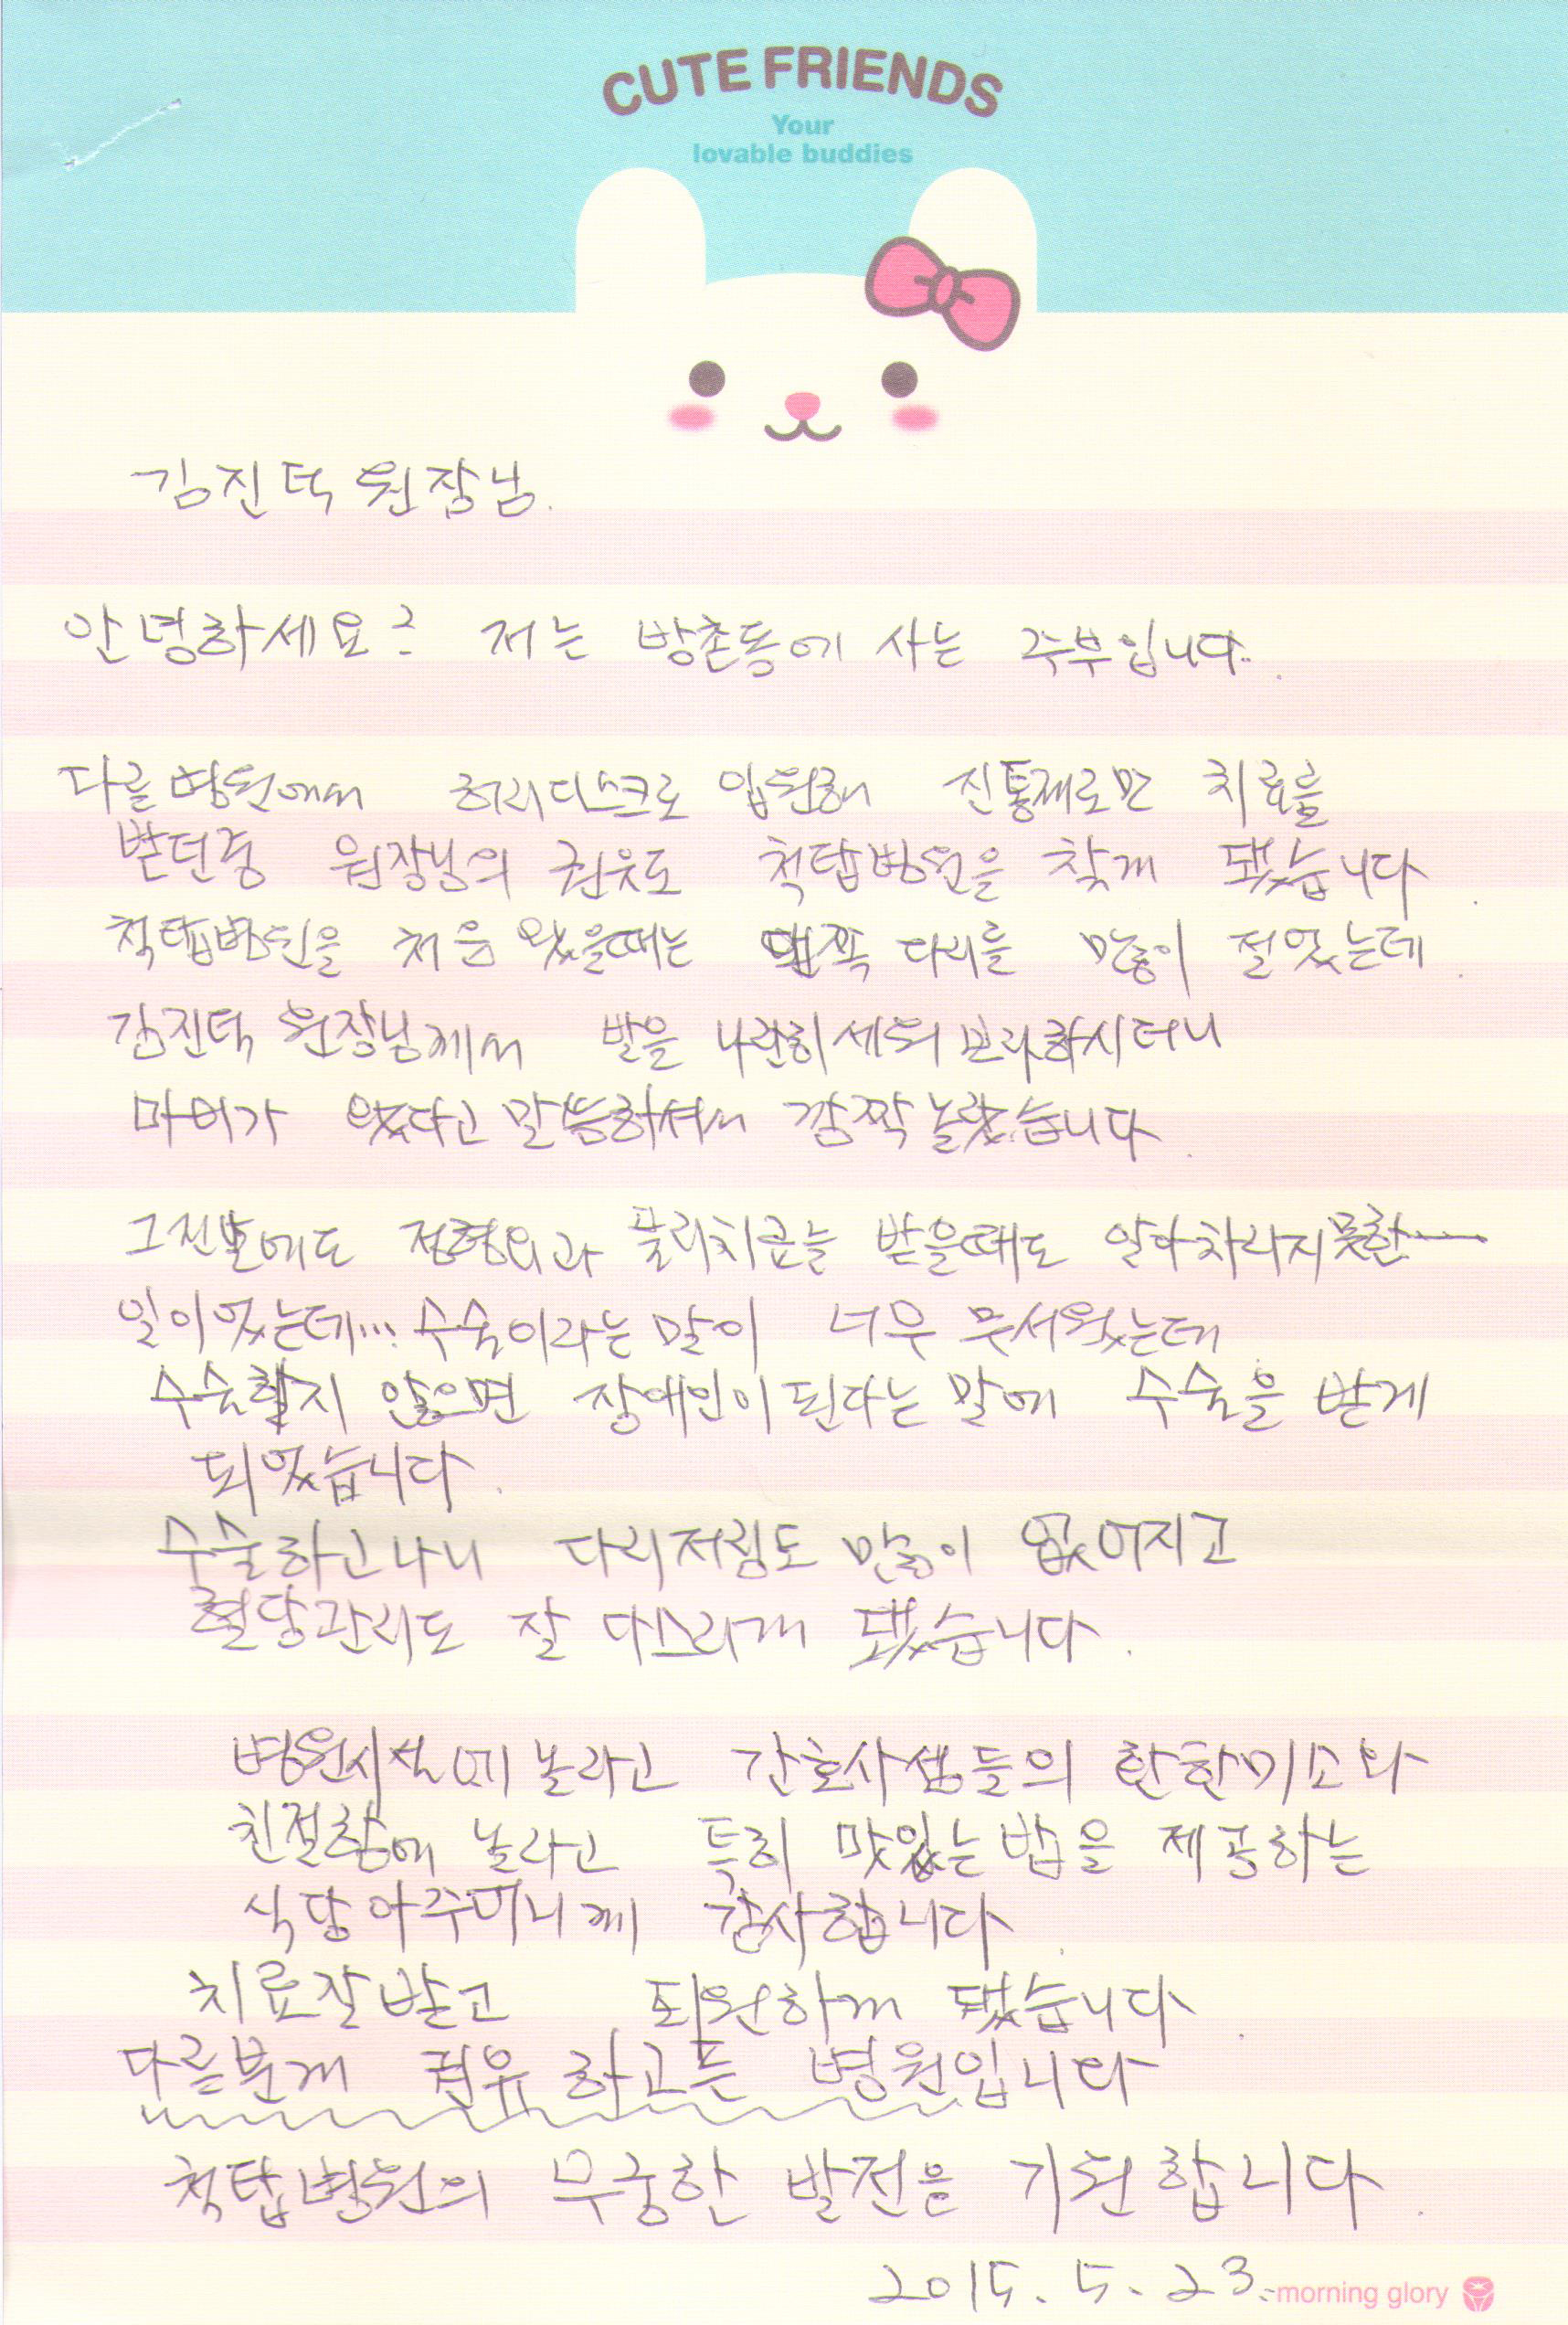 CUTE FRIENDS
Your
lovable buddies
김진덕 원장님.
안녕하세요? 저는 방촌동에 사는 주부입니다.
다른병원에서 허리디스크로 입원해 진통제로만 치료를
받던중 원장님의 권유로 척탑병원을 찾게 됐습니다.
척탑병원을 처음 왔을때는 왼쪽 다리를 많이 절었는데.
김진덕 원장님께서 발을 나란히 세워 보라하시더니
마비가 왔다고 말씀하셔서 깜짝 놀랐습니다.
그전에도 정형외과 물리치료를 받을때도 알아차리지못한……
일이었는데… 수술이라는 말이 너무 무서웠는데
수술하지 않으면 장애인이 된다는 말에 수술을 받게
되었습니다.
수술하고나니 다리저림도 많이 없어지고
혈당관리도 잘 다스리게 됐습니다.
병원시설에 놀라고 간호사샘들의 환한미소와
친절함에 놀라고 특히 맛있는 밥을 제공하는
식당아주머니께 감사합니다.
치료잘받고 퇴원하게 됐습니다.
다른분께 권유하고픈 병원입니다
척탑병원의 무궁한 발전을 기원합니다.
2015. 5. 23.
morning glory